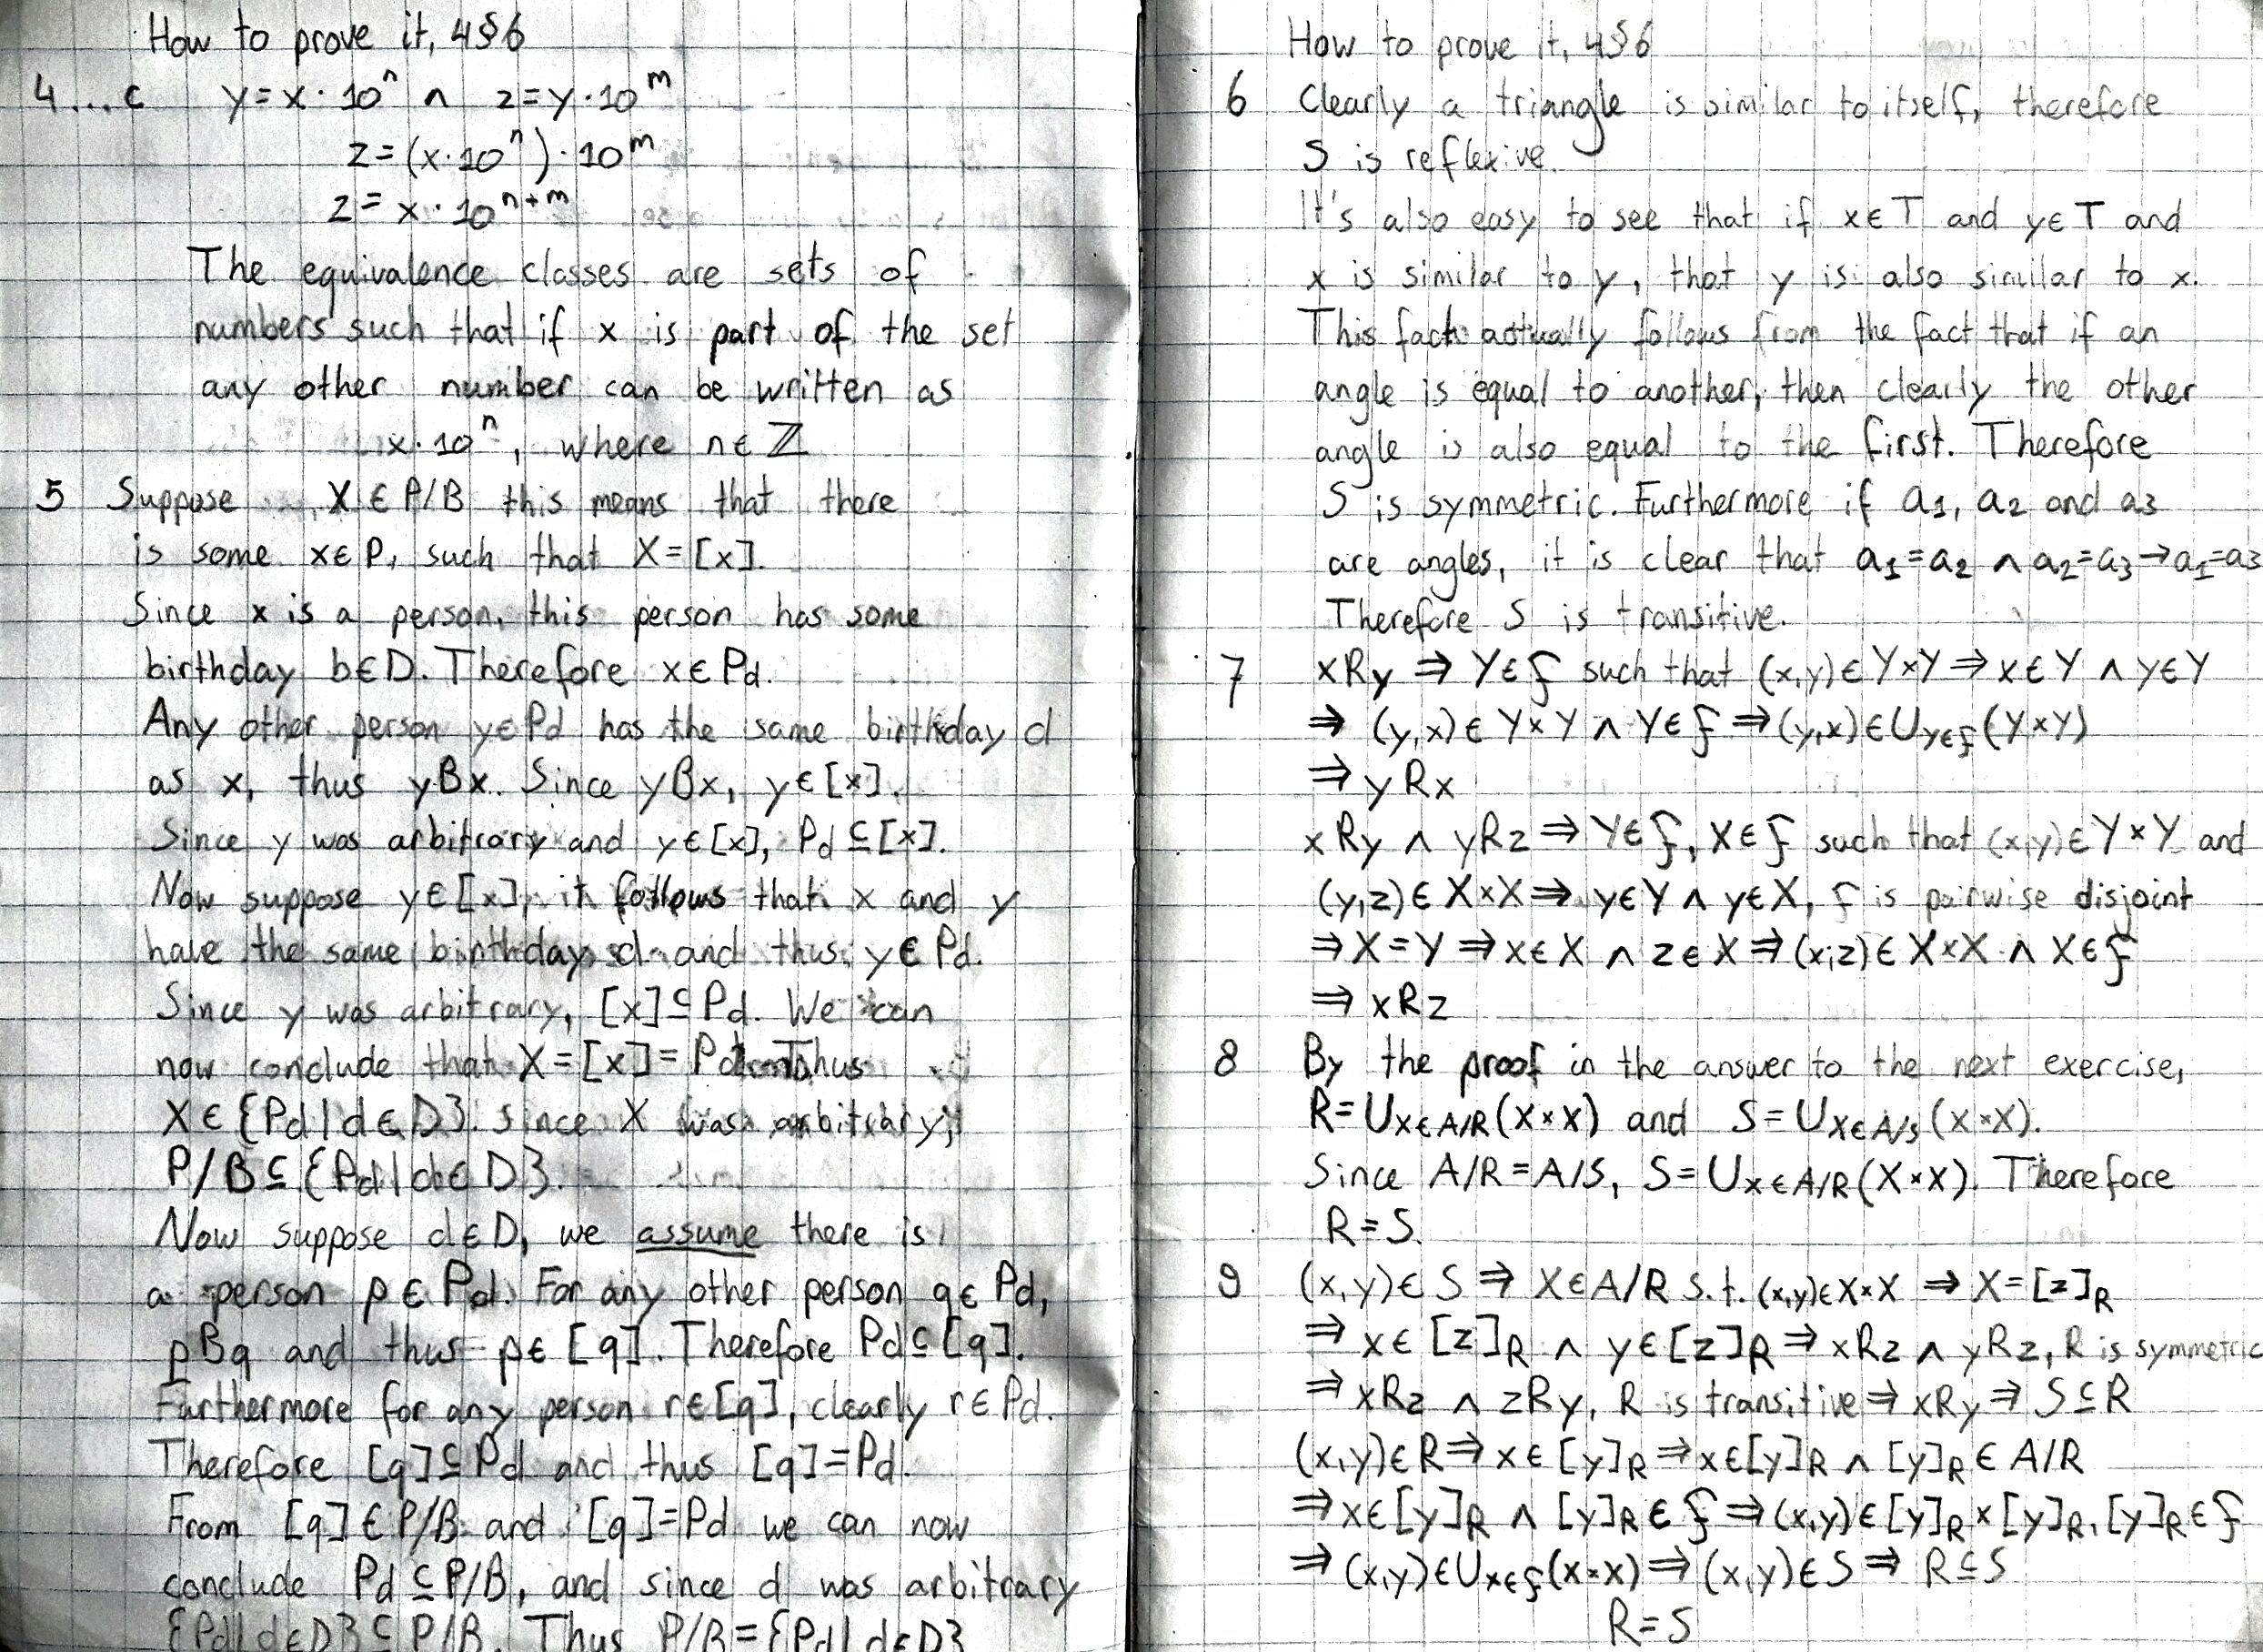 How to prove it, 4§6
4...c y=x·10ⁿ ∧ z=y·10ᵐ
z=(x·10ⁿ)·10ᵐ
z=x·10ⁿ⁺ᵐ
The equivalence classes are sets of
numbers such that if x is part of the set
any other number can be written as
x·10ⁿ, where n∈ℤ
5 Suppose X∈P/B this means that there
is some x∈P, such that X=[x].
Since x is a person, this person has some
birthday b∈D. Therefore x∈Pd.
Any other person y∈Pd has the same birthday d
as x, thus yBx. Since yBx, y∈[x].
Since y was arbitrary and y∈[x], Pd⊆[x].
Now suppose y∈[x], it follows that x and y
have the same birthday d and thus y∈Pd.
Since y was arbitrary, [x]⊆Pd. We can
now conclude that X=[x]=Pd. Thus
X∈{Pd|d∈D}. Since X was arbitrary,
P/B⊆{Pd|d∈D}.
Now suppose d∈D, we assume there is
a person p∈Pd. For any other person q∈Pd,
pBq and thus p∈[q]. Therefore Pd⊆[q].
Furthermore for any person r∈[q], clearly r∈Pd.
Therefore [q]⊆Pd and thus [q]=Pd.
From [q]∈P/B and [q]=Pd we can now
conclude Pd⊆P/B, and since d was arbitrary
{Pd|d∈D}⊆P/B. Thus P/B={Pd|d∈D}
How to prove it, 4§6
6 Clearly a triangle is similar to itself, therefore
S is reflexive.
It's also easy to see that if x∈T and y∈T and
x is similar to y, that y is also similar to x.
This fact actually follows from the fact that if an
angle is equal to another, then clearly the other
angle is also equal to the first. Therefore
S is symmetric. Furthermore if a₁, a₂ and a₃
are angles, it is clear that a₁=a₂ ∧ a₂=a₃→a₁=a₃
Therefore S is transitive.
7 xRy ⇒ Y∈F such that (x,y)∈Y×Y⇒x∈Y ∧ y∈Y
⇒ (y,x)∈Y×Y ∧ Y∈F⇒(y,x)∈∪Y∈F(Y×Y)
⇒yRx
xRy ∧ yRz⇒Y∈F, X∈F such that (x,y)∈Y×Y and
(y,z)∈X×X⇒y∈Y ∧ y∈X, F is pairwise disjoint
⇒X=Y⇒x∈X ∧ z∈X⇒(x,z)∈X×X ∧ X∈F
⇒xRz
8 By the proof in the answer to the next exercise,
R=∪X∈A/R(X×X) and S=∪X∈A/S(X×X).
Since A/R=A/S, S=∪X∈A/R(X×X). Therefore
R=S.
9 (x,y)∈S⇒X∈A/R s.t. (x,y)∈X×X ⇒ X=[z]R
⇒x∈[z]R ∧ y∈[z]R⇒xRz ∧ yRz, R is symmetric
⇒xRz ∧ zRy, R is transitive⇒xRy⇒S⊆R
(x,y)∈R⇒x∈[y]R⇒x∈[y]R ∧ [y]R∈A/R
⇒x∈[y]R ∧ [y]R∈F⇒(x,y)∈[y]R×[y]R, [y]R∈F
⇒(x,y)∈∪X∈F(X×X)⇒(x,y)∈S⇒R⊆S
R=S